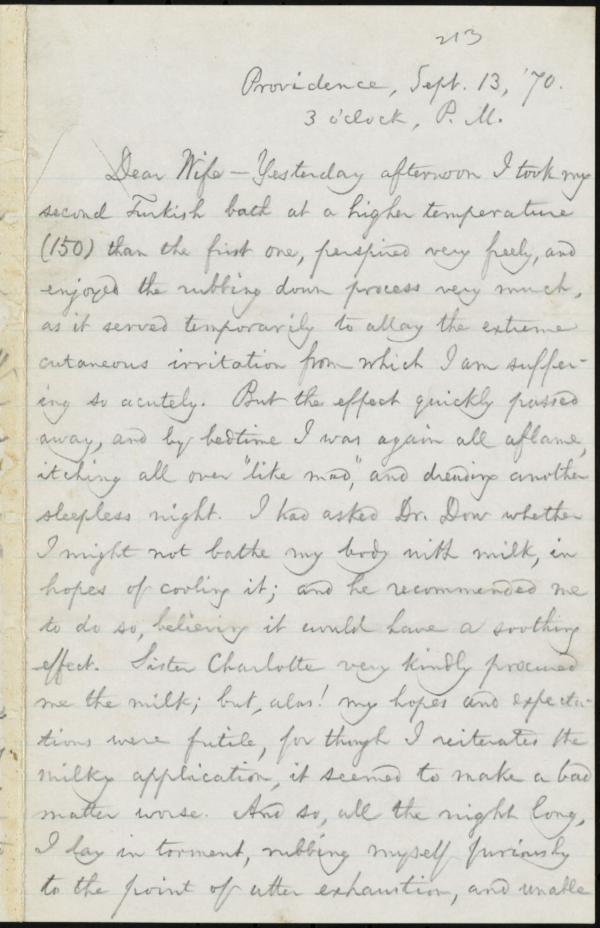 213
Providence, Sept. 13, '70.
3 o'clock, P. M.
Dear Wife — Yesterday afternoon I took my
second Turkish bath at a higher temperature
(150) than the first one, perspired very freely, and
enjoyed the rubbing down process very much,
as it served temporarily to allay the extreme
cutaneous irritation from which I am suffer-
ing so acutely. But the effect quickly passed
away, and by bedtime I was again all aflame,
itching all over "like mad," and dreading another
sleepless night. I had asked Dr. Dow whether
I might not bathe my body with milk, in
hopes of cooling it; and he recommended me
to do so, believing it would have a soothing
effect. Sister Charlotte very kindly procured
me the milk; but, alas! my hopes and expecta-
tions were futile, for though I reiterated the
milky application, it seemed to make a bad
matter worse. And so, all the night long,
I lay in torment, rubbing myself furiously
to the point of utter exhaustion, and unable